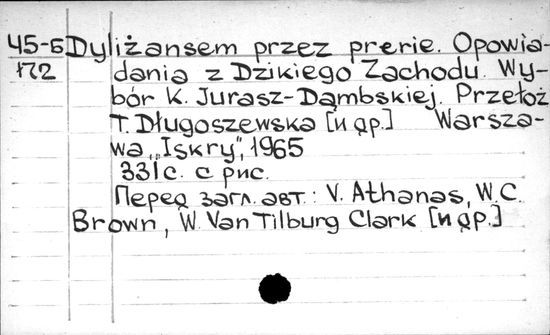 45-Б Dyliżansem przez prerie. Opowia-
172 dania z Dzikiego Zachodu. Wy-
bór K. Jurasz-Dąmbskiej. Przełoż
T. Długoszewska [и др.] Warsza-
wa, „Iskry", 1965
331 с. с рис.
Перед загл. авт.: V. Athanas, W.C.
Brown, W. Van Tilburg Clark [и др.]